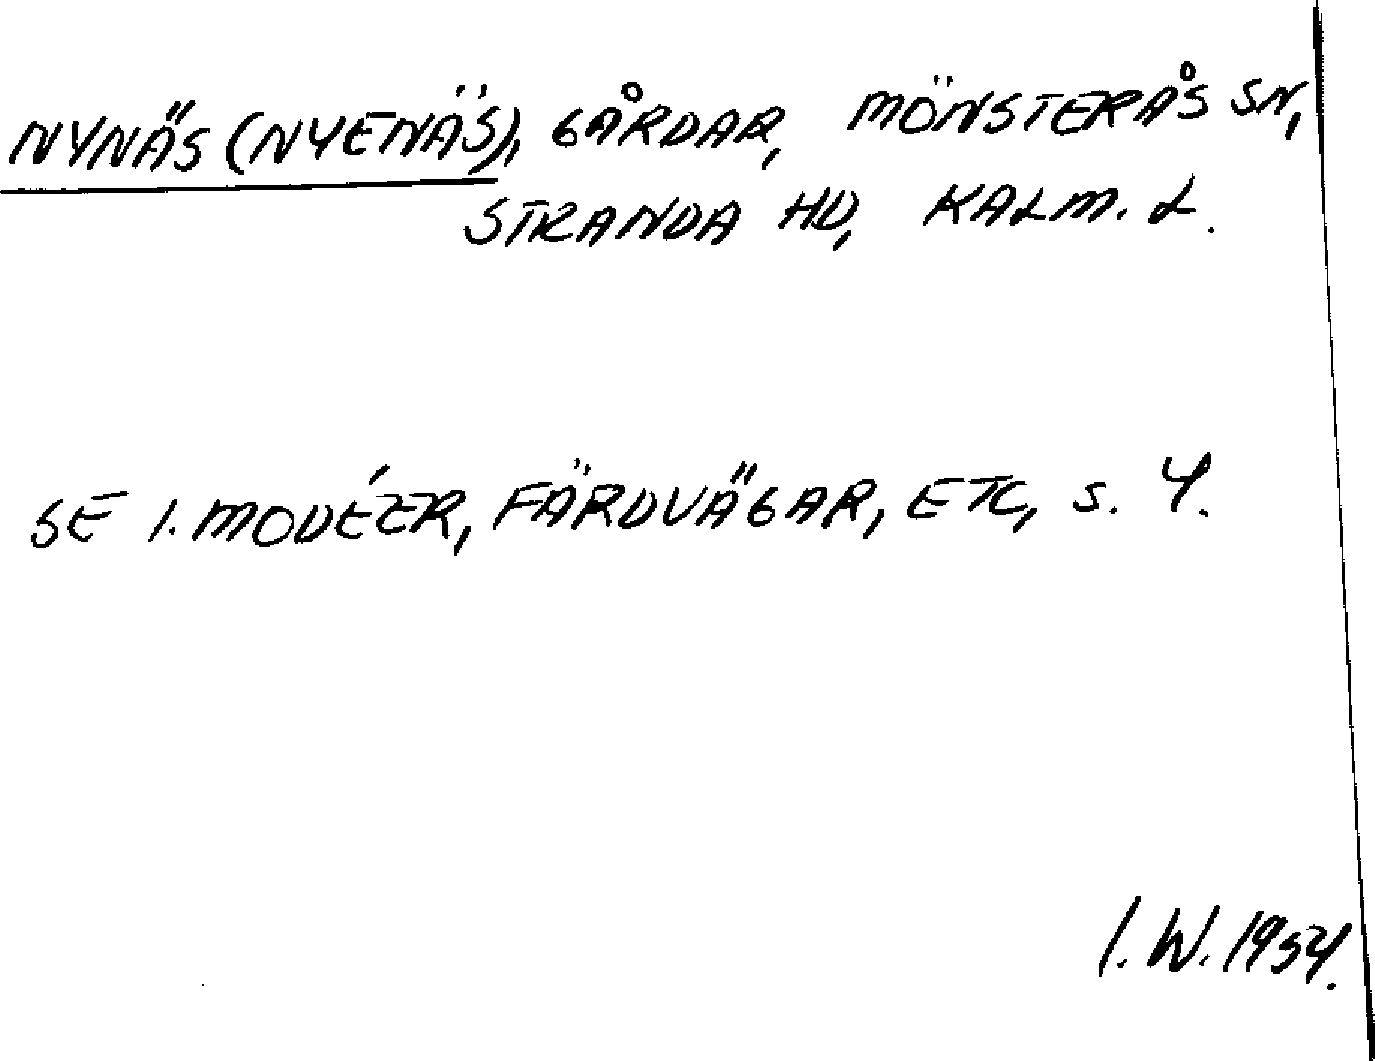 NYNÄS (NYENÄS), GÅRDAR, MÖNSTERÅS SN,
STRANDA HD, KALM. L.
SE I. MODÉER, FÄRDVÄGAR, ETC, S. 4.
I. W. 1954.